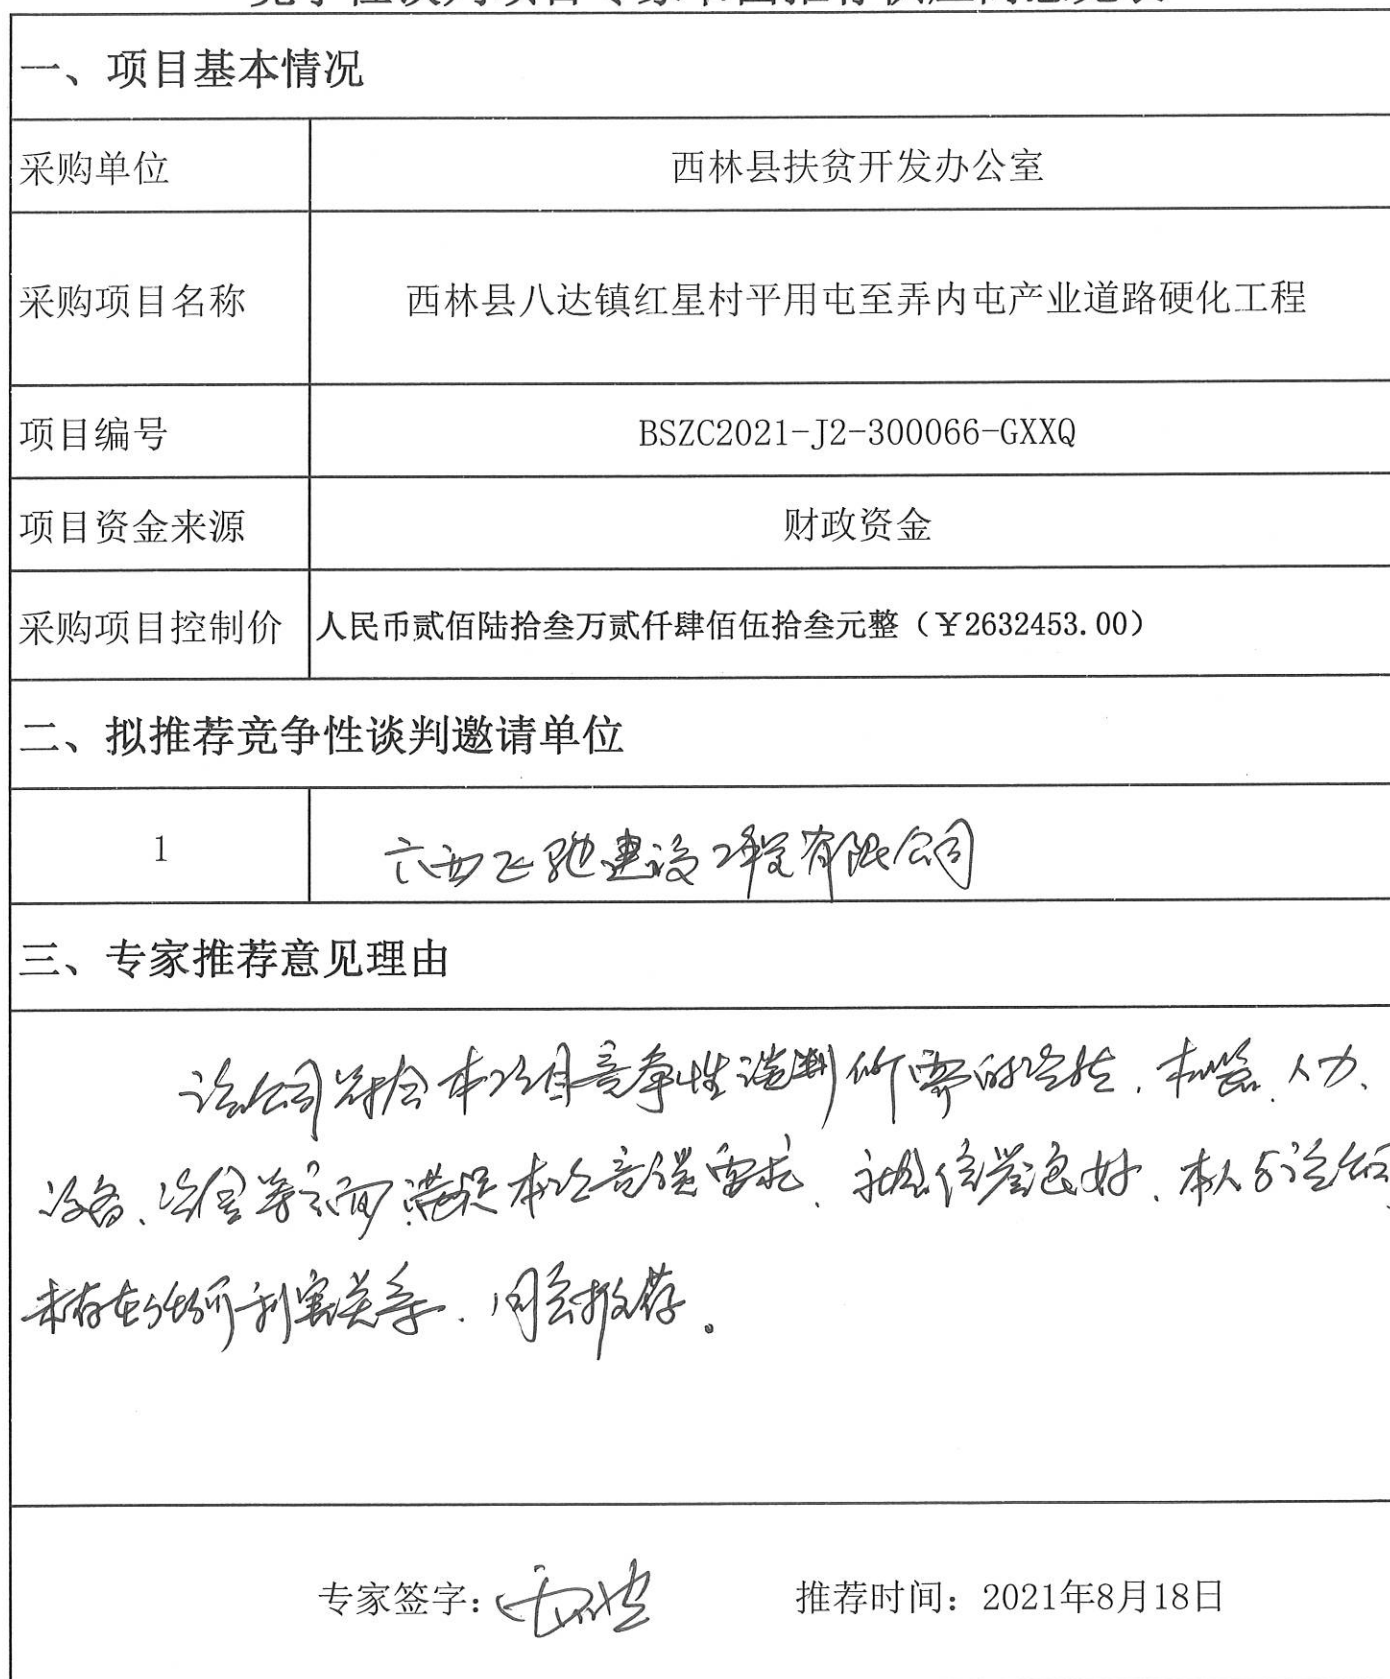 一、项目基本情况
采购单位 西林县扶贫开发办公室
采购项目名称 西林县八达镇红星村平用屯至弄内屯产业道路硬化工程
项目编号 BSZC2021-J2-300066-GXXQ
项目资金来源 财政资金
采购项目控制价 人民币贰佰陆拾叁万贰仟肆佰伍拾叁元整（￥2632453.00）
二、拟推荐竞争性谈判邀请单位
1 广西飞驰建设工程有限公司
三、专家推荐意见理由
该公司符合本项目竞争性谈判所需的资质,
设备、资金等方面满足本次竞谈需求、信誉良好、本人与该公司
未存在任何利害关系.同意推荐。
专家签字: 推荐时间：2021年8月18日